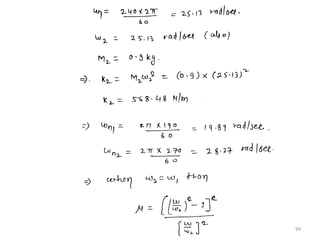 ω₁ = 240×2π / 60 = 25.13 rad/sec.
ω₂ = 25.13 rad/sec (also)
M₂ = 0.9 kg.
⇒ K₂ = M₂ω₂² = (0.9) × (25.13)²
K₂ = 568.48 N/m
⇒ ωn₁ = 2π × 190 / 60 = 19.89 rad/sec.
ωn₂ = 2π × 270 / 60 = 28.27 rad/sec.
⇒ when ω₂ = ω₁ then
μ = [(ω/ω₂)² - 1]² / [ω/ω₂]²
94